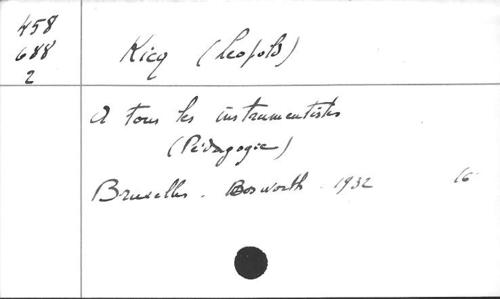 458
688
2
Kicq (Leopold)
A tous les instrumentistes
(Pédagogie)
Bruxelles. Bosworth. 1932 16